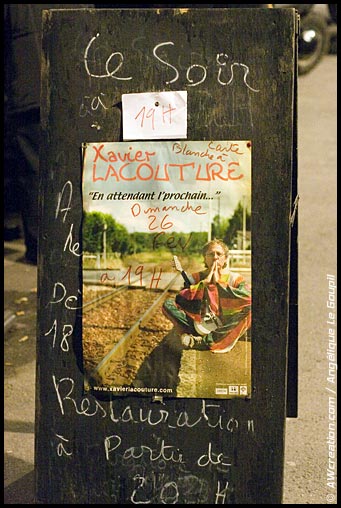 Ce Soir
à
19H
Xavier Carte
Blanche à
LACOUTURE
"En attendant l'prochain..."
Dimanche
26
Fev
à 19H
www.xavierlacouture.com
Dè
18
Restauration
à Partie de
20 H
© AWcreation.com / Angélique Le Goupil